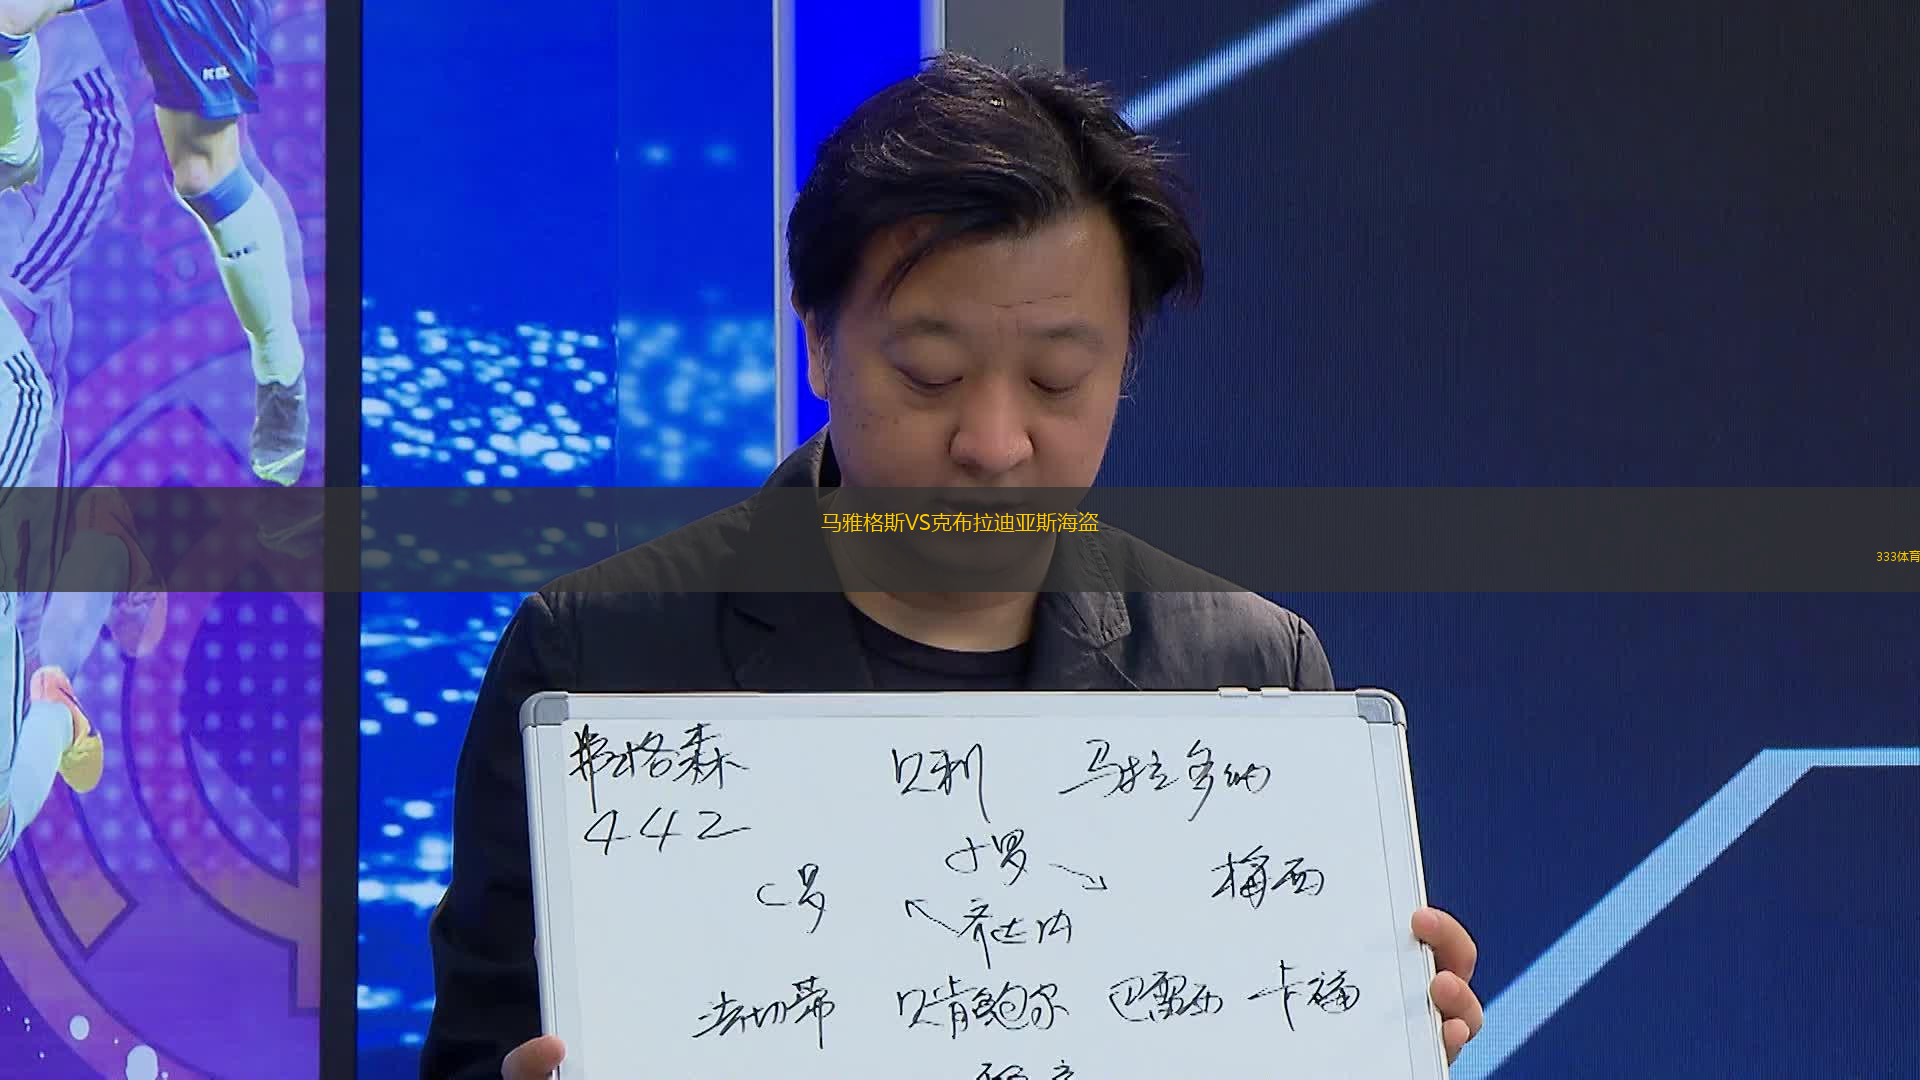 马雅格斯VS克布拉迪亚斯海盗
333体育
弗格森 贝利 马拉多纳
442
小罗
C罗 梅西
齐达内
法切蒂 贝肯鲍尔 巴雷西 卡福